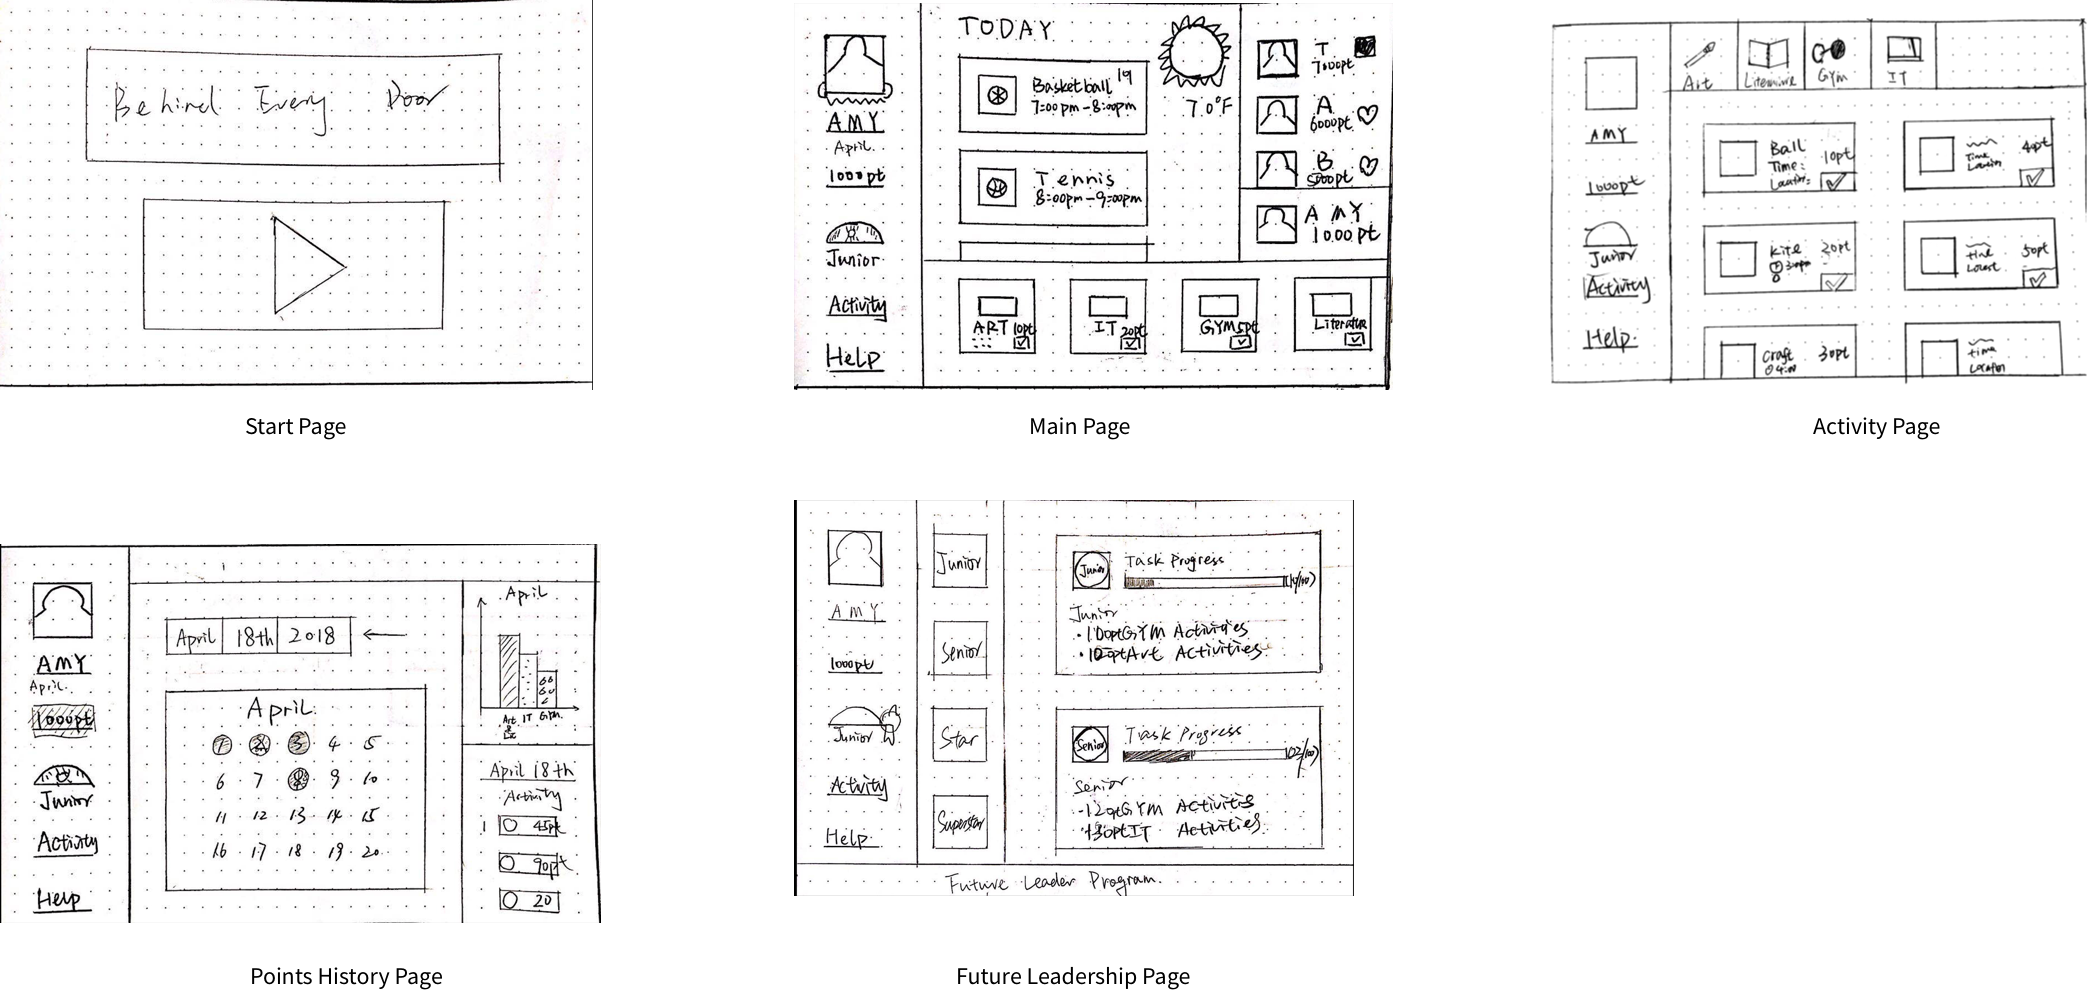 Behind Every Door
Start Page
AMY
April.
1000pt
Junior
Activity
Help
TODAY
Basketball 19
7:00pm-8:00pm
Tennis
8:00pm-9:00pm
70°F
T
7000pt
A
6000pt
B
5000pt
AMY
1000pt
ART 10pt
IT 20pt
GYM 5pt
Main Page
AMY
1000pt
Junior
Activity
Help.
Art
GYm
IT
Ball
Time: 10pt
40pt
Time
Kite 20pt
50pt
Craft 30pt
time
Activity Page
AMY
April.
1000pt
Junior
Activity
Help
April 18th 2018
April.
1 2 3 4 5
6 7 8 9 10
11 12 13 14 15
16 17 18 19 20
April
Art IT Gym.
April 18th
Activity
45pt
90pt
20
Points History Page
AMY
1000pt
Junior
Activity
Help
Junior
Senior
Star
Superstar
Junior
Task Progress
Junior
GYM Activities
Art Activities
Senior
Task Progress
Senior
GYM Activities
IT Activities
Future Leader Program.
Future Leadership Page